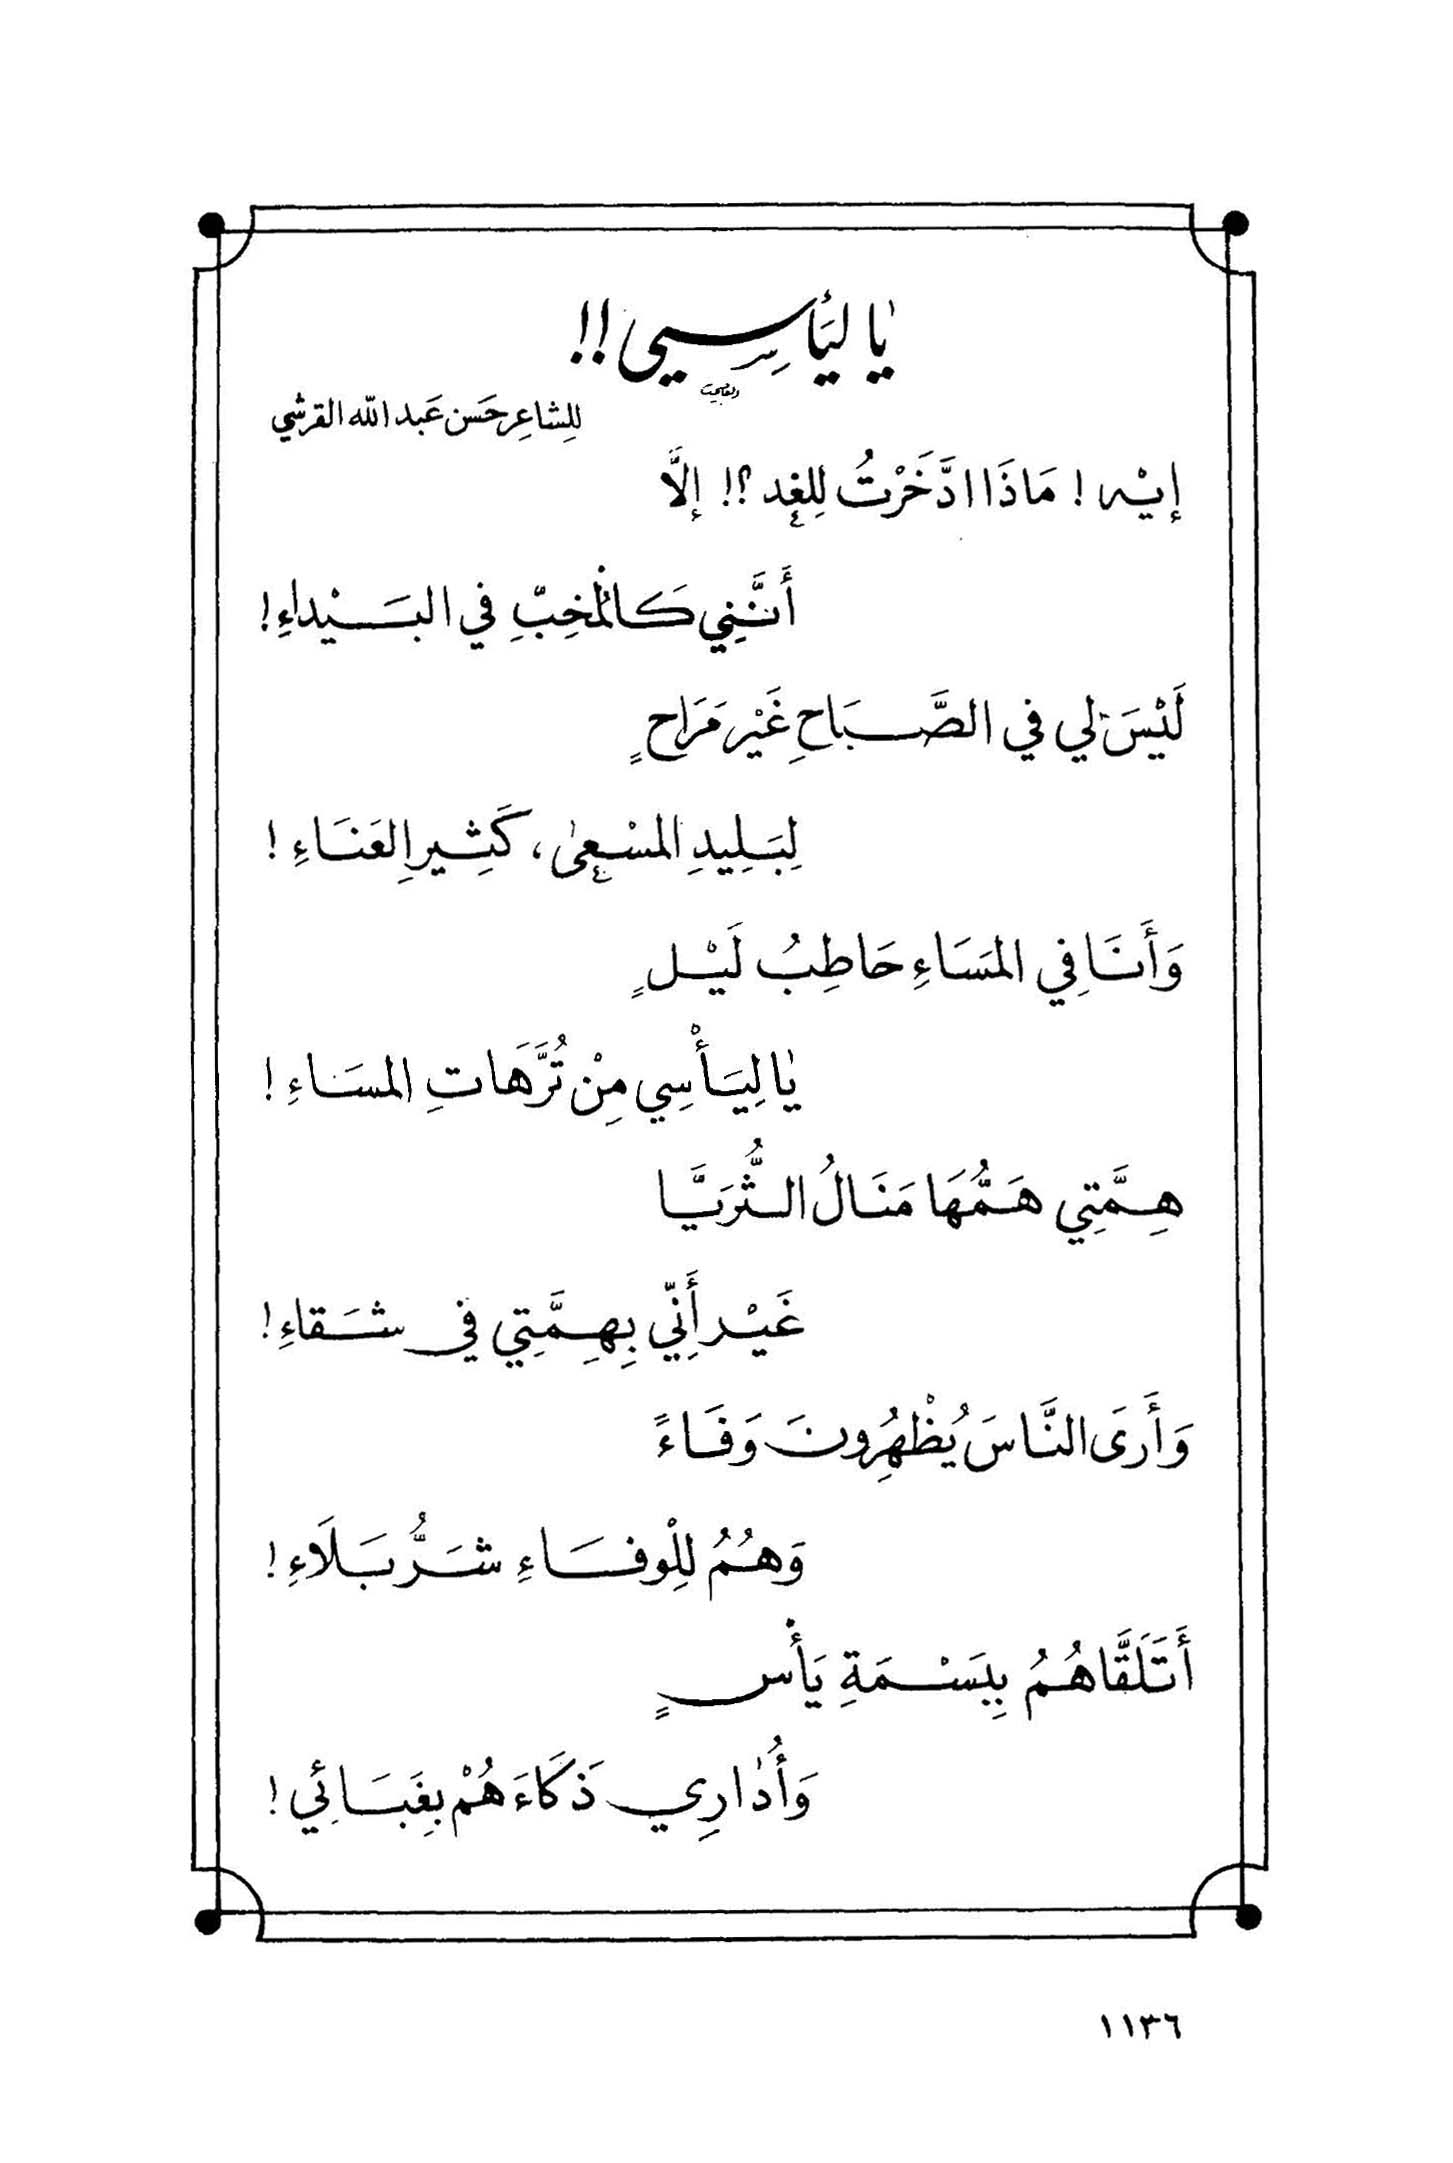 يَا ليَأسِيي !!
للِشاعِر حَسن عَبد الله القرشي
إيْه ! مَاذَا ادَّخَرْتُ لِلغدِ ؟! إلاَّ
أَنَّنِي كَالمُخِبِّ في البَيْداءِ!
لَيْسَ لي في الصَّبَاحِ غَيْر مَرَاحٍ
لِبَلِيدِ المسْعىٰ، كَثِيرِ العَنَاءِ !
وَأَنَا فِي المَسَاءِ حَاطِبُ لَيْلٍ
يَا لِيَأْسِي مِنْ تُرَّهَاتِ المسَاءِ !
هِمَّتِي هَمُّهَا مَنَالُ الثُّرَيَّا
غَيْر أَنِّي بِهِمَّتِي في شَقاءِ!
وَأَرَى النَّاسَ يُظْهِرُونَ وَفَاءً
وَهُمُ لِلْوفَاءِ شَرُّ بَلَاءِ !
أَتَلَقَّاهُمُ بِبَسْمَةِ يَأْسٍ
وَأُدَارِي ذَكَاءَهُمْ بِغَبَائِي !
١١٣٦